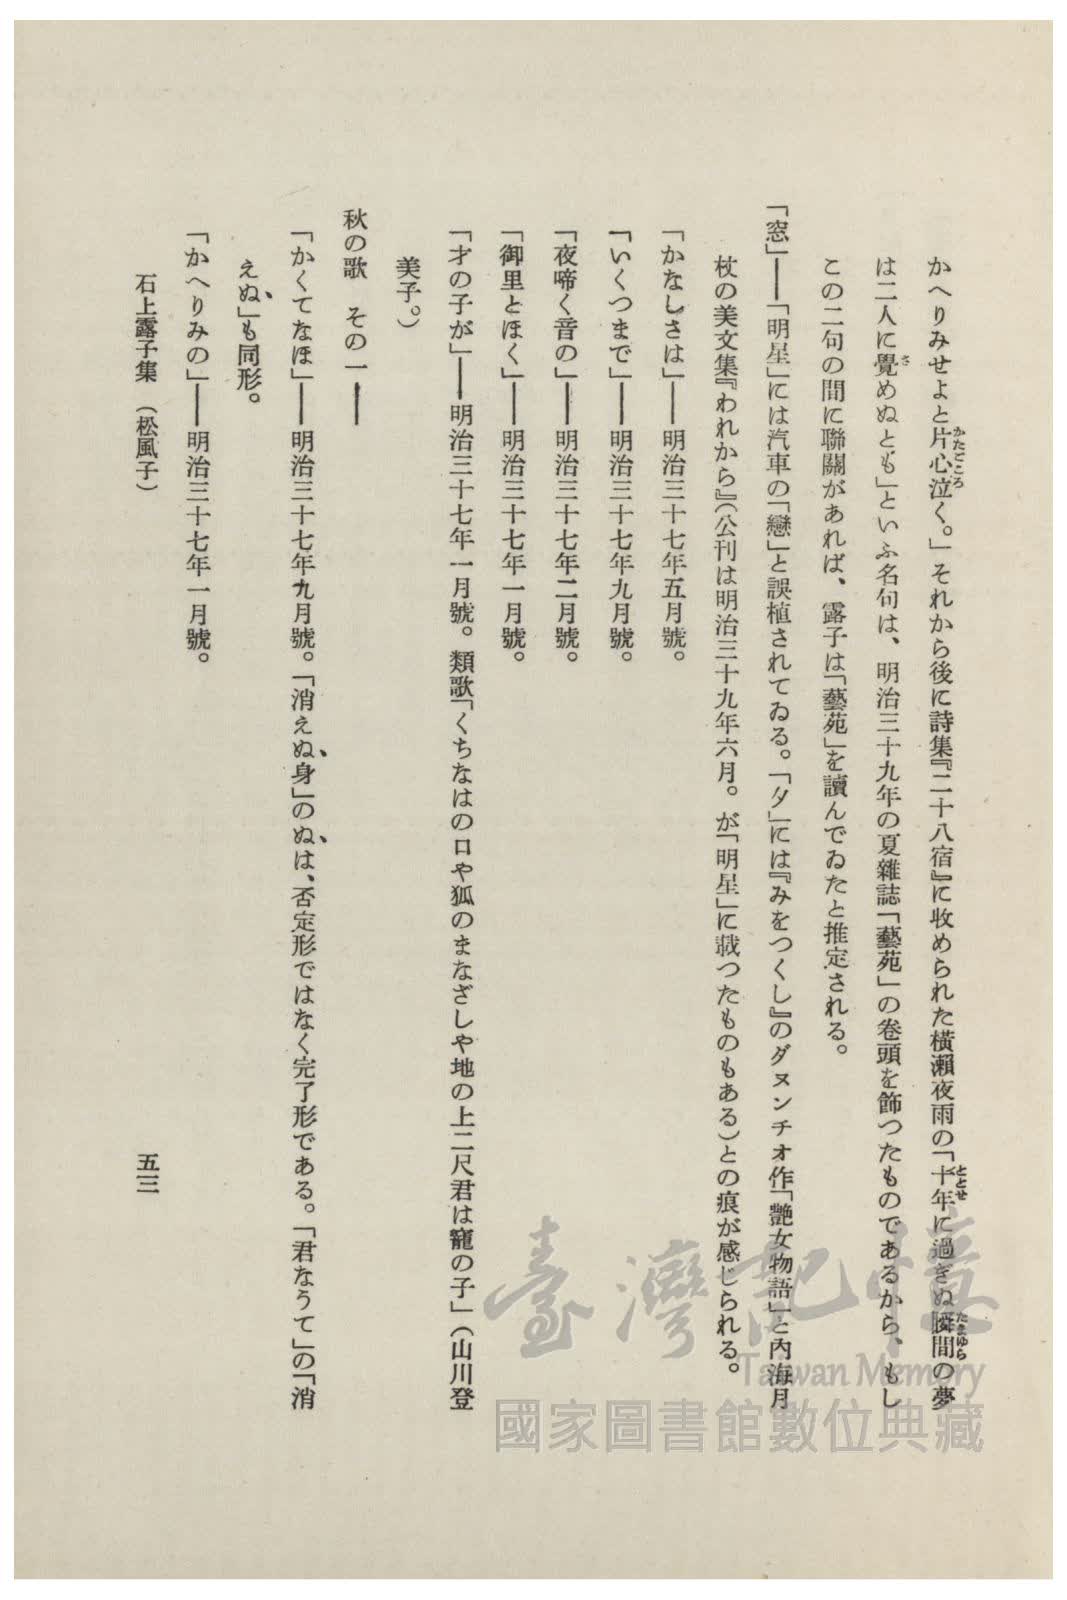 かへりみせよと片心泣く。」それから後に詩集『二十八宿』に收められた横瀨夜雨の「十年に過ぎぬ瞬間の夢
かたごころ
ととせ
たまゆら
は二人に覺めぬとも」といふ名句は、明治三十九年の夏雜誌「藝苑」の卷頭を飾つたものであるから、もし
さ
この二句の間に聯關があれば、露子は「藝苑」を讀んでゐたと推定される。
「窓」――「明星」には汽車の「戀」と誤植されてゐる。「夕」には『みをつくし』のダヌンチオ作「艶女物語」と內海月
杖の美文集『われから』(公刊は明治三十九年六月。が「明星」に載つたものもある)との痕が感じられる。
「かなしさは」――明治三十七年五月號。
「いくつまで」――明治三十七年九月號。
「夜啼く音の」――明治三十七年二月號。
「御里とほく」――明治三十七年一月號。
「才の子が」――明治三十七年一月號。類歌「くちなはの口や狐のまなざしや地の上二尺君は寵の子」(山川登
美子。)
秋の歌　その一――
「かくてなほ」――明治三十七年九月號。「消えぬ、身」のぬ、は、否定形ではなく完了形である。「君なうて」の「消
えぬ、」も同形。
「かへりみの」――明治三十七年一月號。
石上露子集　(松風子)
五三
臺灣記憶
Taiwan Memory
國家圖書館數位典藏